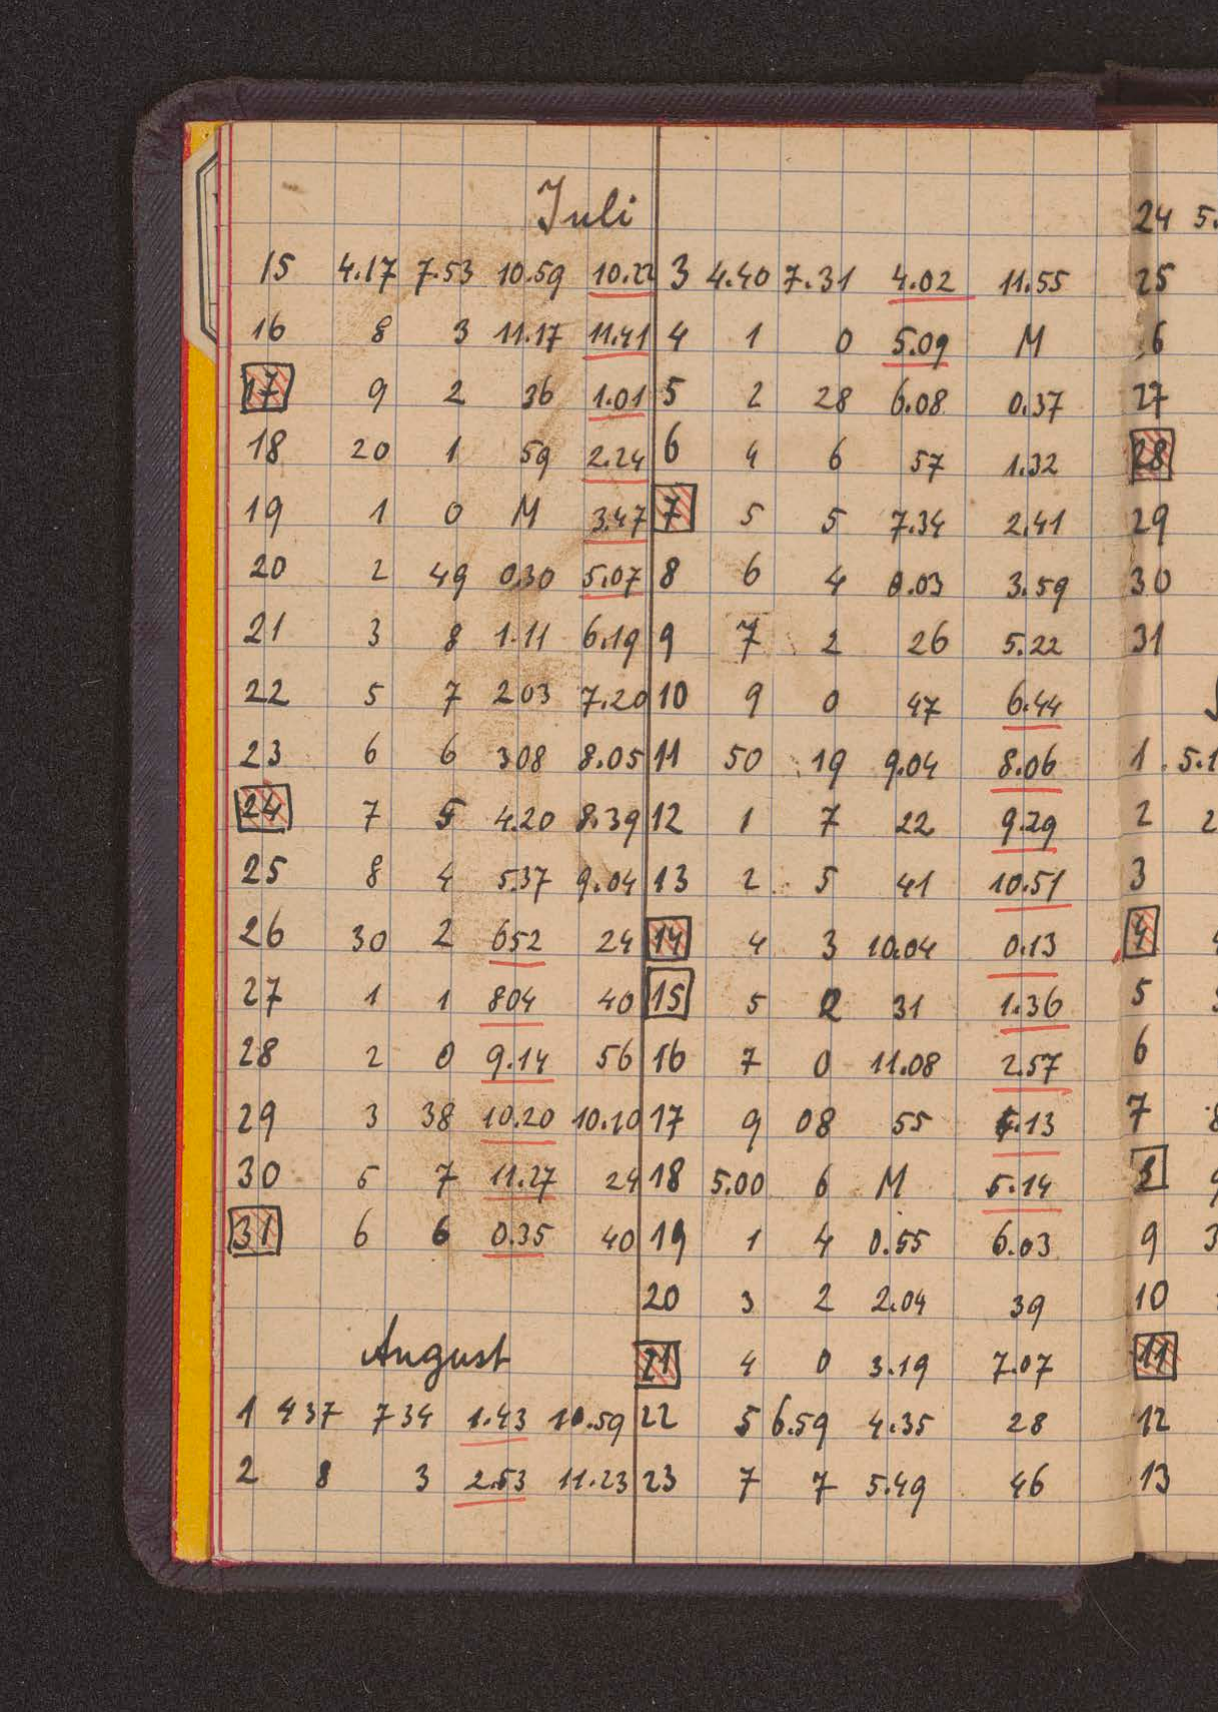 Juli
15 4.17 7.53 10.59 10.22
16 8 3 11.17 11.41
17 9 2 36 1.01
18 20 1 59 2.24
19 1 0 M 3.47
20 2 49 0.30 5.07
21 3 8 1.11 6.19
22 5 7 2 03 7.20
23 6 6 3 08 8.05
24 7 5 4.20 8.39
25 8 4 5.37 9.04
26 30 2 652 24
27 1 1 804 40
28 2 0 9.14 56
29 3 38 10.20 10.10
30 5 7 11.27 24
31 6 6 0.35 40
August
1 4 37 7 34 1.43 10.59
2 8 3 2.53 11.23
3 4.40 7.31 4.02 11.55
4 1 0 5.09 M
5 2 28 6.08 0.37
6 4 6 57 1.32
7 5 5 7.34 2.41
8 6 4 8.03 3.59
9 7 2 26 5.22
10 9 0 47 6.44
11 50 19 9.04 8.06
12 1 7 22 9.29
13 2 5 41 10.51
14 4 3 10.04 0.13
15 5 2 31 1.36
16 7 0 11.08 2.57
17 9 08 55 4.13
18 5.00 6 M 5.14
19 1 4 0.55 6.03
20 3 2 2.04 39
21 4 0 3.19 7.07
22 5 6.59 4.35 28
23 7 7 5.49 46
24 5.
25
6
27
28
29
30
31
1 5.1
2 2
3
4
5
6
7 8
8 9
9 3
10
11
12
13